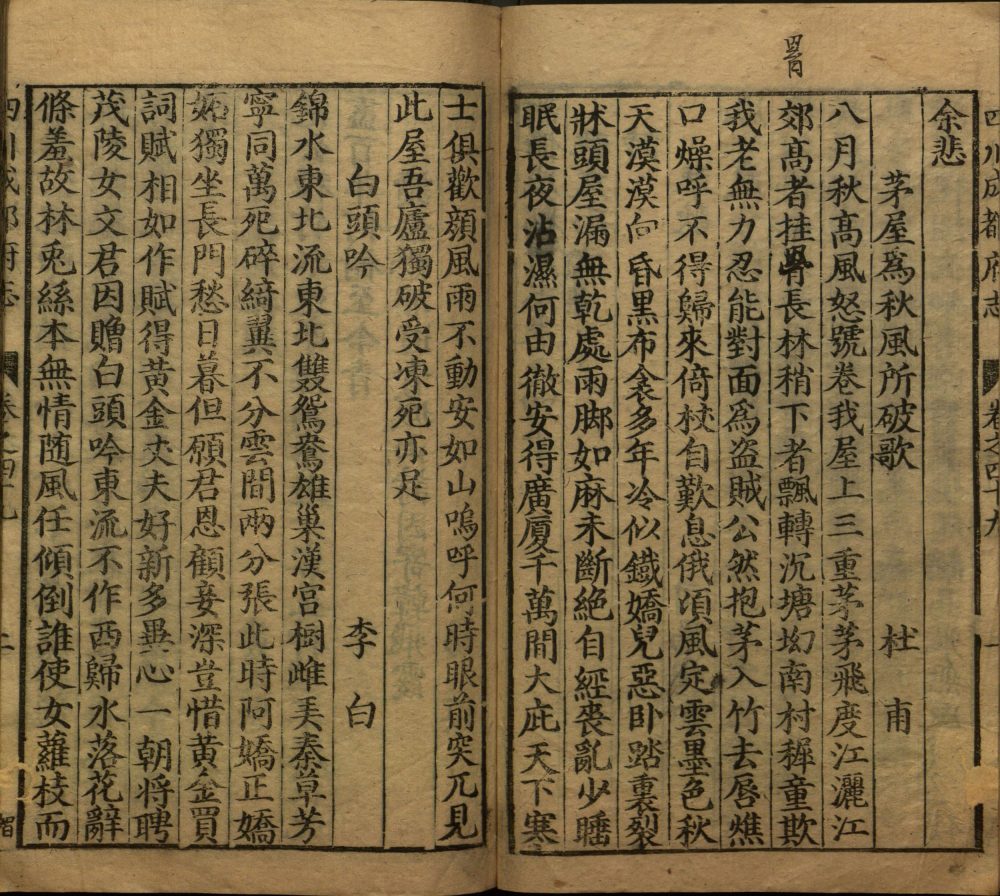 罥
四川成都府志 卷之四十九 一
余悲
茅屋爲秋風所破歌 杜甫
八月秋髙風怒號卷我屋上三重茅茅飛度江灑江
郊髙者挂罥長林稍下者飄轉沉塘坳南村穉童欺
我老無力忍能對面爲盗賊公然抱茅入竹去唇燋
口燥呼不得歸來倚杖自歎息俄頃風定雲墨色秋
天漠漠向昏黒布衾多年冷似鐵嬌兒惡卧踏裏裂
牀頭屋漏無乾處雨脚如麻未斷絶自經喪亂少睡
眠長夜沾濕何由徹安得廣厦千萬間大庇天下寒
士俱歡顔風雨不動安如山嗚呼何時眼前突兀見
此屋吾廬獨破受凍死亦足
白頭吟 李白
錦水東北流東北雙鴛鴦雄巢漢宫樹雌美秦草芳
寧同萬死碎綺翼不分雲間兩分張此時阿嬌正嬌
妬獨坐長門愁日暮但願君恩顧妾深豈惜黄金買
詞賦相如作賦得黄金丈夫好新多異心一朝將聘
茂陵女文君因贈白頭吟東流不作西歸水落花辭
條羞故林兎絲本無情随風任傾倒誰使女蘿枝而
四川成都府志 卷之四十九